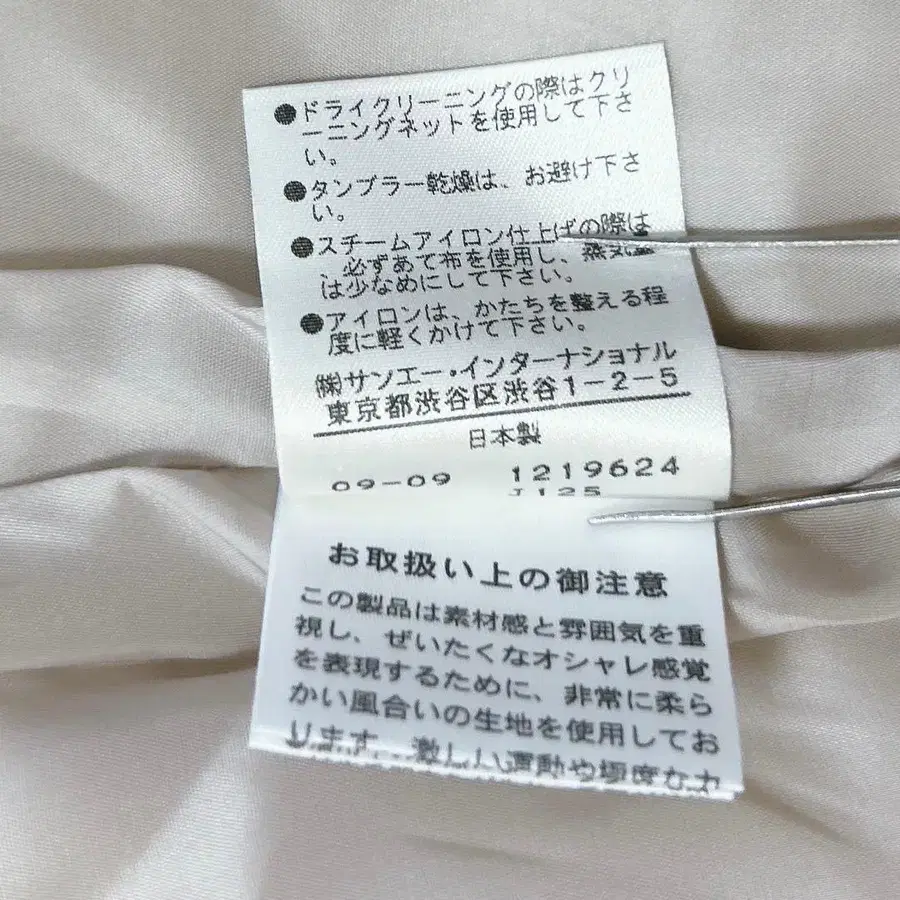 ●ドライクリーニングの際はクリ
ーニングネットを使用して下さ
い。
●タンブラー乾燥は、お避け下さ
い。
●スチームアイロン仕上げの際は
、必ずあて布を使用し、蒸気量
は少なめにして下さい。
●アイロンは、かたちを整える程
度に軽くかけて下さい。
㈱サンエー・インターナショナル
東京都渋谷区渋谷1-2-5
日本製
09-09 1219624
J125
お取扱い上の御注意
この製品は素材感と雰囲気を重
視し、ぜいたくなオシャレ感覚
を表現するために、非常に柔ら
かい風合いの生地を使用してお
ります。激しい運動や極度な力